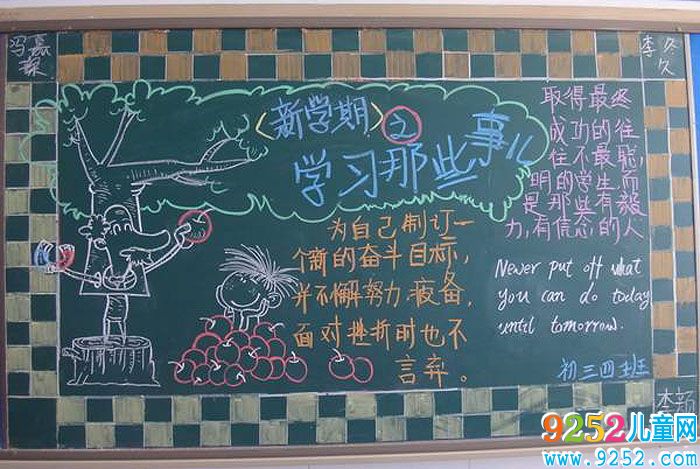 冯嘉
李久久
《新学期》之
学习那些事儿
取得最终
成功的往
往不最聪,
明的学生而
是那些有毅
力,有信念的人
为自己制订一
个新的奋斗目标,
并不懈努力,疲备,
面对挫折时也不
言弃。
Never put off what
you can do today
until tomorrow.
初三四班
李颖
9252儿童网
www.9252.com